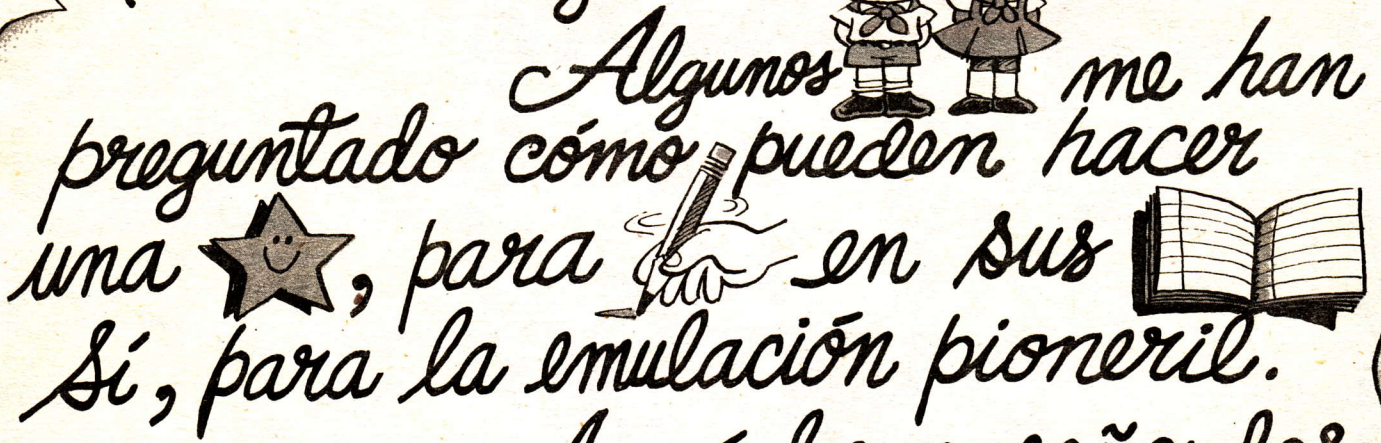 Algunos me han
preguntado cómo pueden hacer
una , para en sus
Sí, para la emulación pioneril.